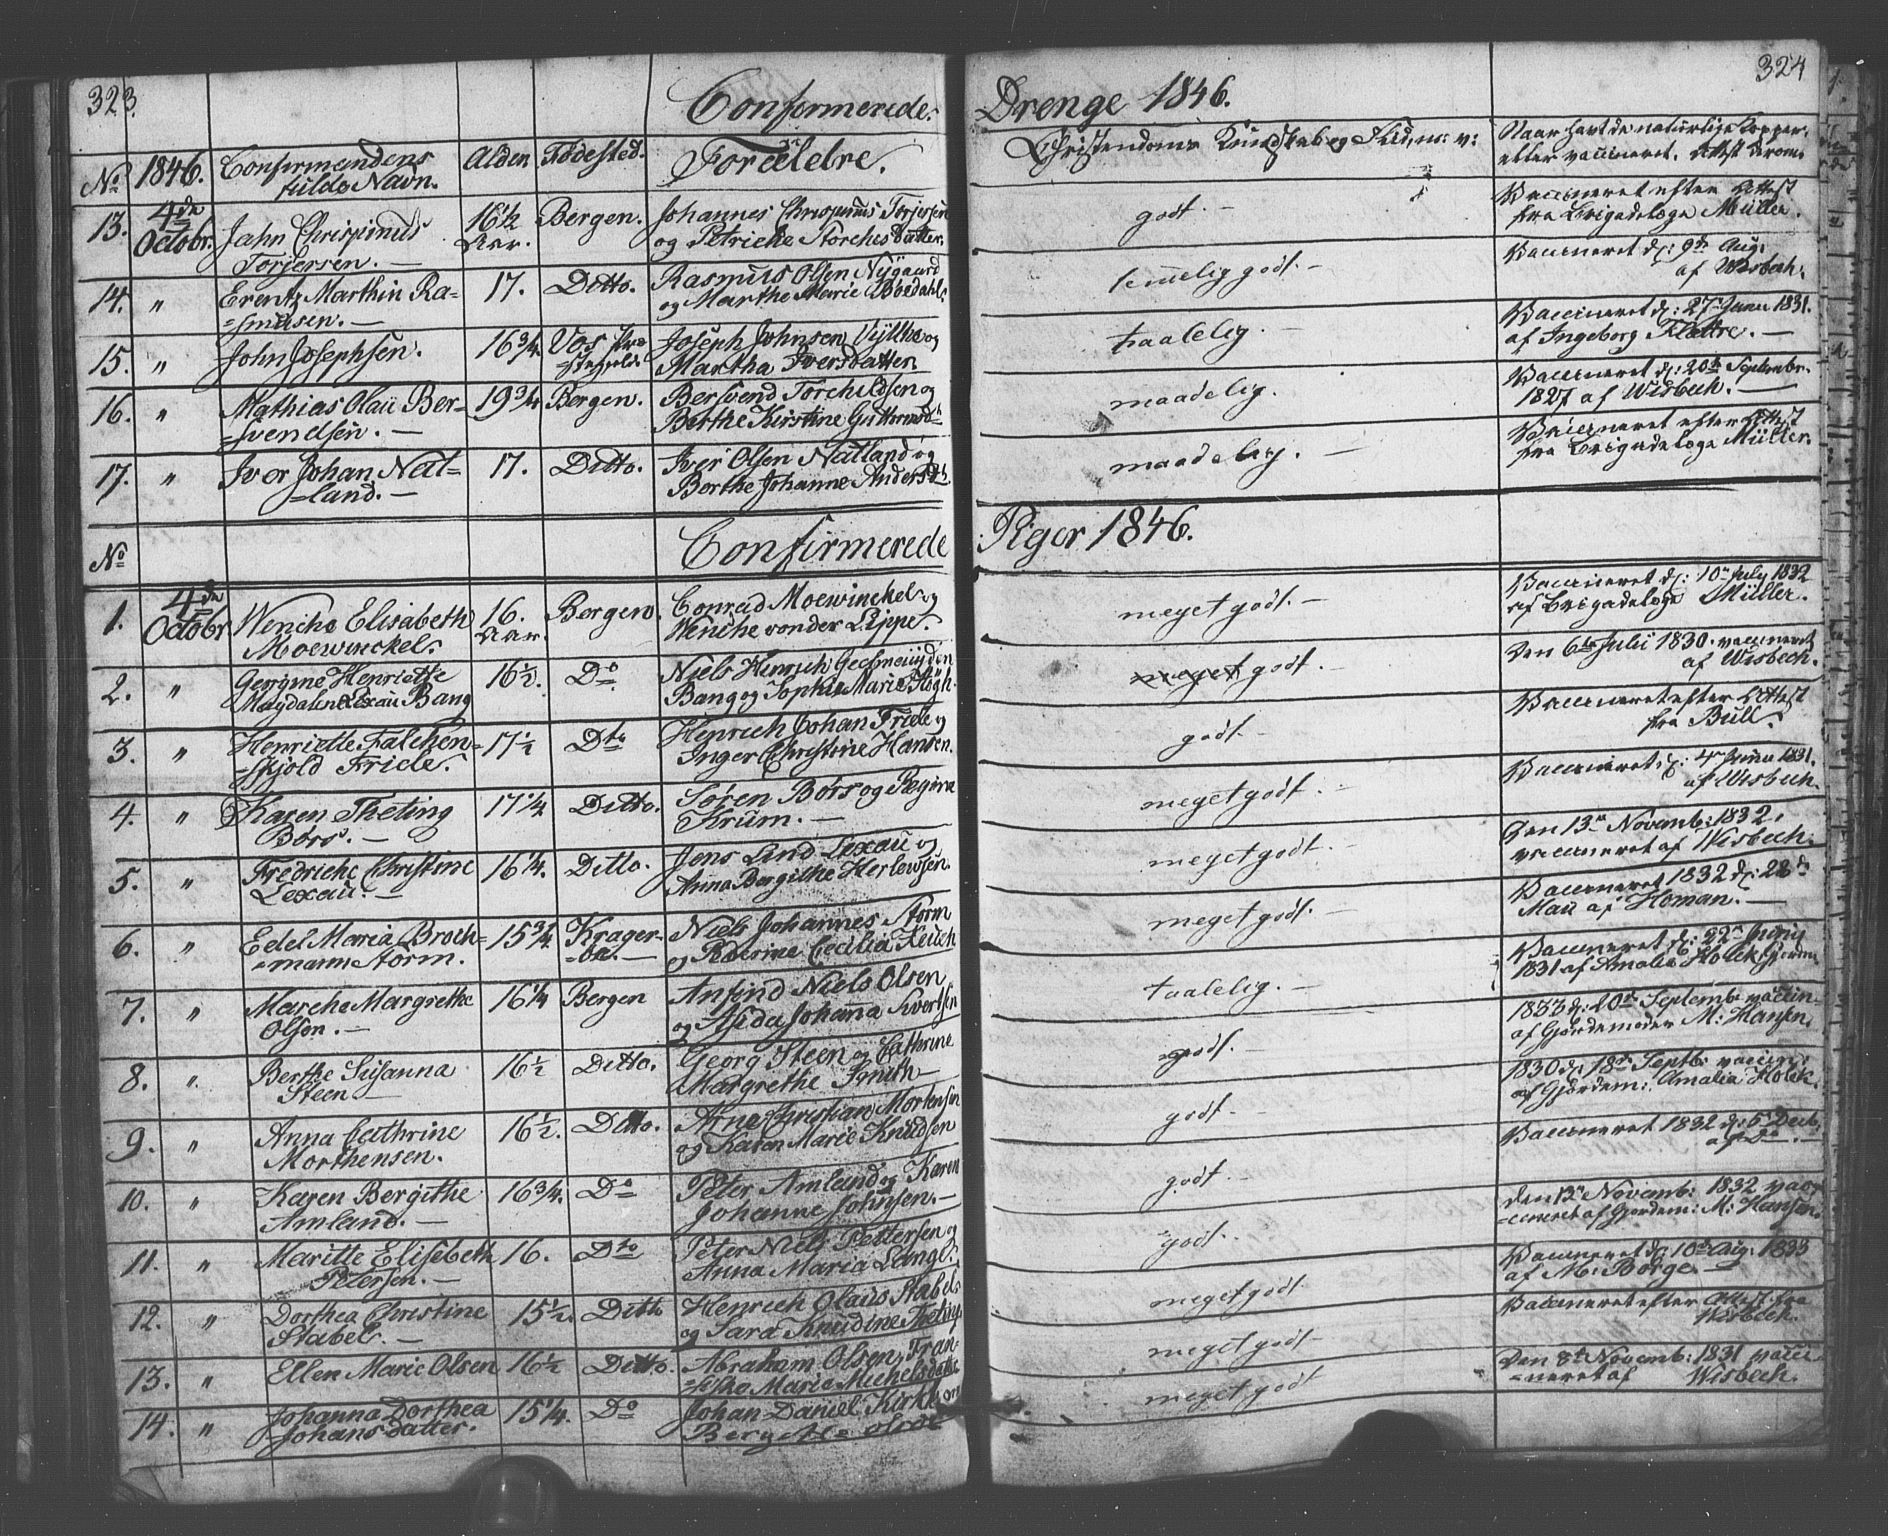 323. Confirmerede Drenge 1846. 324
No 1846. Confirmandens fulde Navn. Alder Fødested. Forældre. Christendoms Kundskab og Flid, m: v: Naar havt de naturlige Kopper eller vaccineret, Attest derom.
13. 4de Octobr. Jahn Chrispinus Torjersen. — 16 1/2 Aar. Bergen. Johannes Chrispinus Torjersen og Petricke Storches datter. godt. — Vaccineret efter Attest fra Brigadelæge Müller.
14. " Erentz Marthin Rasmusen. — 17. Ditto. Rasmus Olsen Nygaard og Marthe Marie Boedahl. temelig godt. — Vaccineret d: 9de Aug: af Wisbech.
15. " John Josephsen. 16 3/4. Vos Præstegield. Joseph Johnsen Kythe og Martha Iversdatter. taalelig. — Vaccineret d: 27 Janu 1831. af Ingeborg Flattre. —
16. " Mathias Olaü Bersvendsen. — 19 3/4 Bergen. Bersvend Torchildsen og Berthe Kirstine Guttormsd. maadelig. Vaccineret d: 20de Septembr. 1827 af Wisbech. —
17. " Iver Johan Natland. — 17. Ditto. Iver Olsen Natland og Berthe Johanne Andersd. maadelig. — Vaccineret efter Attest fra Brigadelæge Müller.
No Confirmerede Piger 1846.
1. 4de Octobr Wenche Elisabeth Moewinckel. 16. Aar. Bergen. Conrad Moewinckel og Wenche von der Lippe. meget godt. — Vaccineret d: 10n July 1832 af Brigadelæge Müller.
2. " Gergine Henriette Magdalene Lexau Bang 16 1/2. Do Niels Hinrich Geelmeuyden Bang og Sophie Marie Høgh. meget godt. — Den 6te Julii 1830. vaccineret af Wisbech.
3. " Henriette Falchenskjold Friele. 17 1/2 Dto Henrich Johan Friele og Inger Christine Hansen. godt. — Vaccineret efter Attest fra Büll.
4. " Karen Theting Børs. — 17 1/4 Ditto. Søren Børs og Regina Krüm. — meget godt. — Vaccineret d: 4n Janu 1831. af Wisbech.
5. " Fredricke Christine Lexau. — 16 1/4. Ditto. Jens Lind Lexau og Anna Bergithe Herlewsen. meget godt. — Den 13n Novemb: 1832. vaccineret af Wisbech.
6. " Edel Maria Brochmann Storm. 15 3/4 Kragerøe. — Niels Johannes Storm og Cecilia meget godt. — Vaccineret 1832 d: 22de Mai af Homan. —
7. " Marche Margrethe Olsen. — 16 1/4 Bergen Anfind Niels Olsen og Johanna Sivertsen taalelig. — Vaccineret d: 22n 1831 af Amalia Holck, Gjordm.
8. " Berthe Susanna Steen — 16 1/2 Ditto. Georg Steen og Cathrine Margrethe Smith — godt. — 1833 d: 20de Septemb vaccin. af Gjordemoder M: Hansen.
9. " Anna Cathrine Morthensen. 16 1/2. Ditto. Arne Christian Mortensen og Karen Marie Knudsen godt. — 1830 d: 18de Septb: vaccin: af Gjordem: Amalia Holck.
10. " Karen Bergithe Amland. — 16 3/4. Do Peter Amland og Karen Johanne Johnsen. — godt. — Vaccineret 1832 d: 5 Decb. af Do. —
11. " Maritte Elisebeth Petersen. — 16. Dto Peter Niels Pettersen og Anna Maria Lange. godt. — Den 13n Novemb: 1832 vaccineret af Gjordem: M: Hansen.
12. " Dorthea Christine Stabel. — 15 1/2. Ditto Henrich Olaus Stabel og Sara Knudine Theting. meget godt. Vaccineret d: 10de Aug: 1833 af M: Borge. —
13. " Ellen Marie Olsen 16 1/2 Ditto. Abraham Olsen, Fransisko Marie Michelsdatter meget godt. — Vaccineret efter Attest fra Wisbech.
14. " Johanna Dorthea Johansdatter. 15 1/4. Do Johan Daniel Kirkhorn Bergette meget godt Den 8de Novemb: 1831 vaccineret af Wisbech.